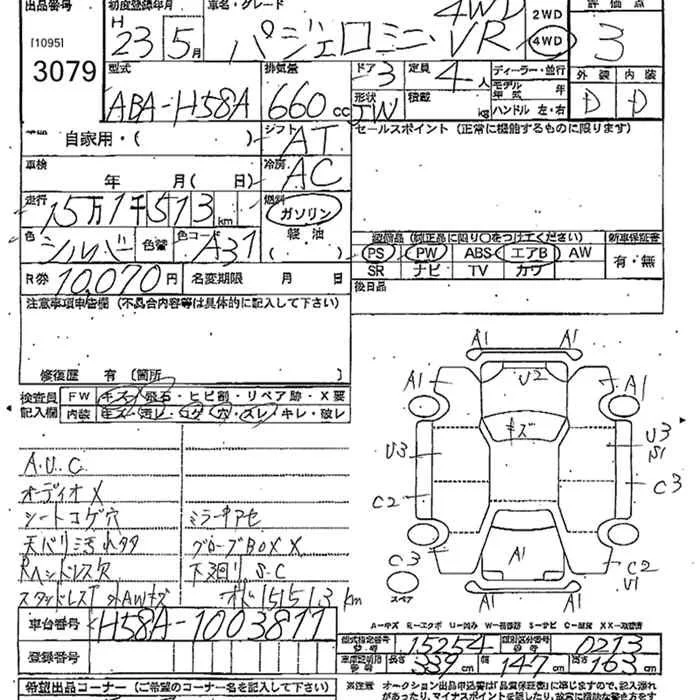 出品番号 初度登録年月 車名・グレード 評価点
[1095] H 23年 5月 パジェロミニ 4WD VR 2WD 4WD 3
3079
型式 排気量 ドア 3 定員 4人 ディーラー・並行 外装 内装
ABA-H58A 660cc 形状 JW 積載 kg モデル年式 年 D D
ハンドル 左・右
自家用・( ) シフト AT セールスポイント (正常に機能するものに限ります)
車検 冷房
年 月( 日) AC
走行 燃料
15万1千513km ガソリン
色 シルバー 色替 色コード A31 軽油 ( ) 装備品 (純正品に限り○をつけてください) 新車保証書
PS PW ABS エアB AW 有・無
SR ナビ TV カワ
R券 10,070円 名変期限 月 日 後日品
注意事項申告欄 (不具合内容等は具体的に記入して下さい)
修復歴 有 (箇所
検査員 FW キズ・飛石・ヒビ割・リペア跡・X要
記入欄 内装 キズ・汚レ・コゲ・穴・スレ・キレ・破レ
A.U.C
オーディオX
シートコゲ穴 ミラーキアセ
天バリ汚れタタ グローブBOX X
Rヘッドレス欠 下廻り S.C
スタッドレスT 外AWキズ オド151513km
車台番号 H58A-1003811
登録番号
A1 A1
A1 U2 A1
キズ
U3 U3 S1
C2 C3
C3 A1 C2 U1
スペア
A1 A1
A-キズ E-エクボ U-凹み W-補修跡 S-サビ C-腐食 XX-取替済
型式指定番号 15254 類別区分番号 0213
長さ 339cm 幅 147cm 高さ 163cm
希望出品コーナー (ご希望のコーナー名を記入して下さい)
※注意 オークション出品申込書は「品質保証書」に準じますので、記入漏れ